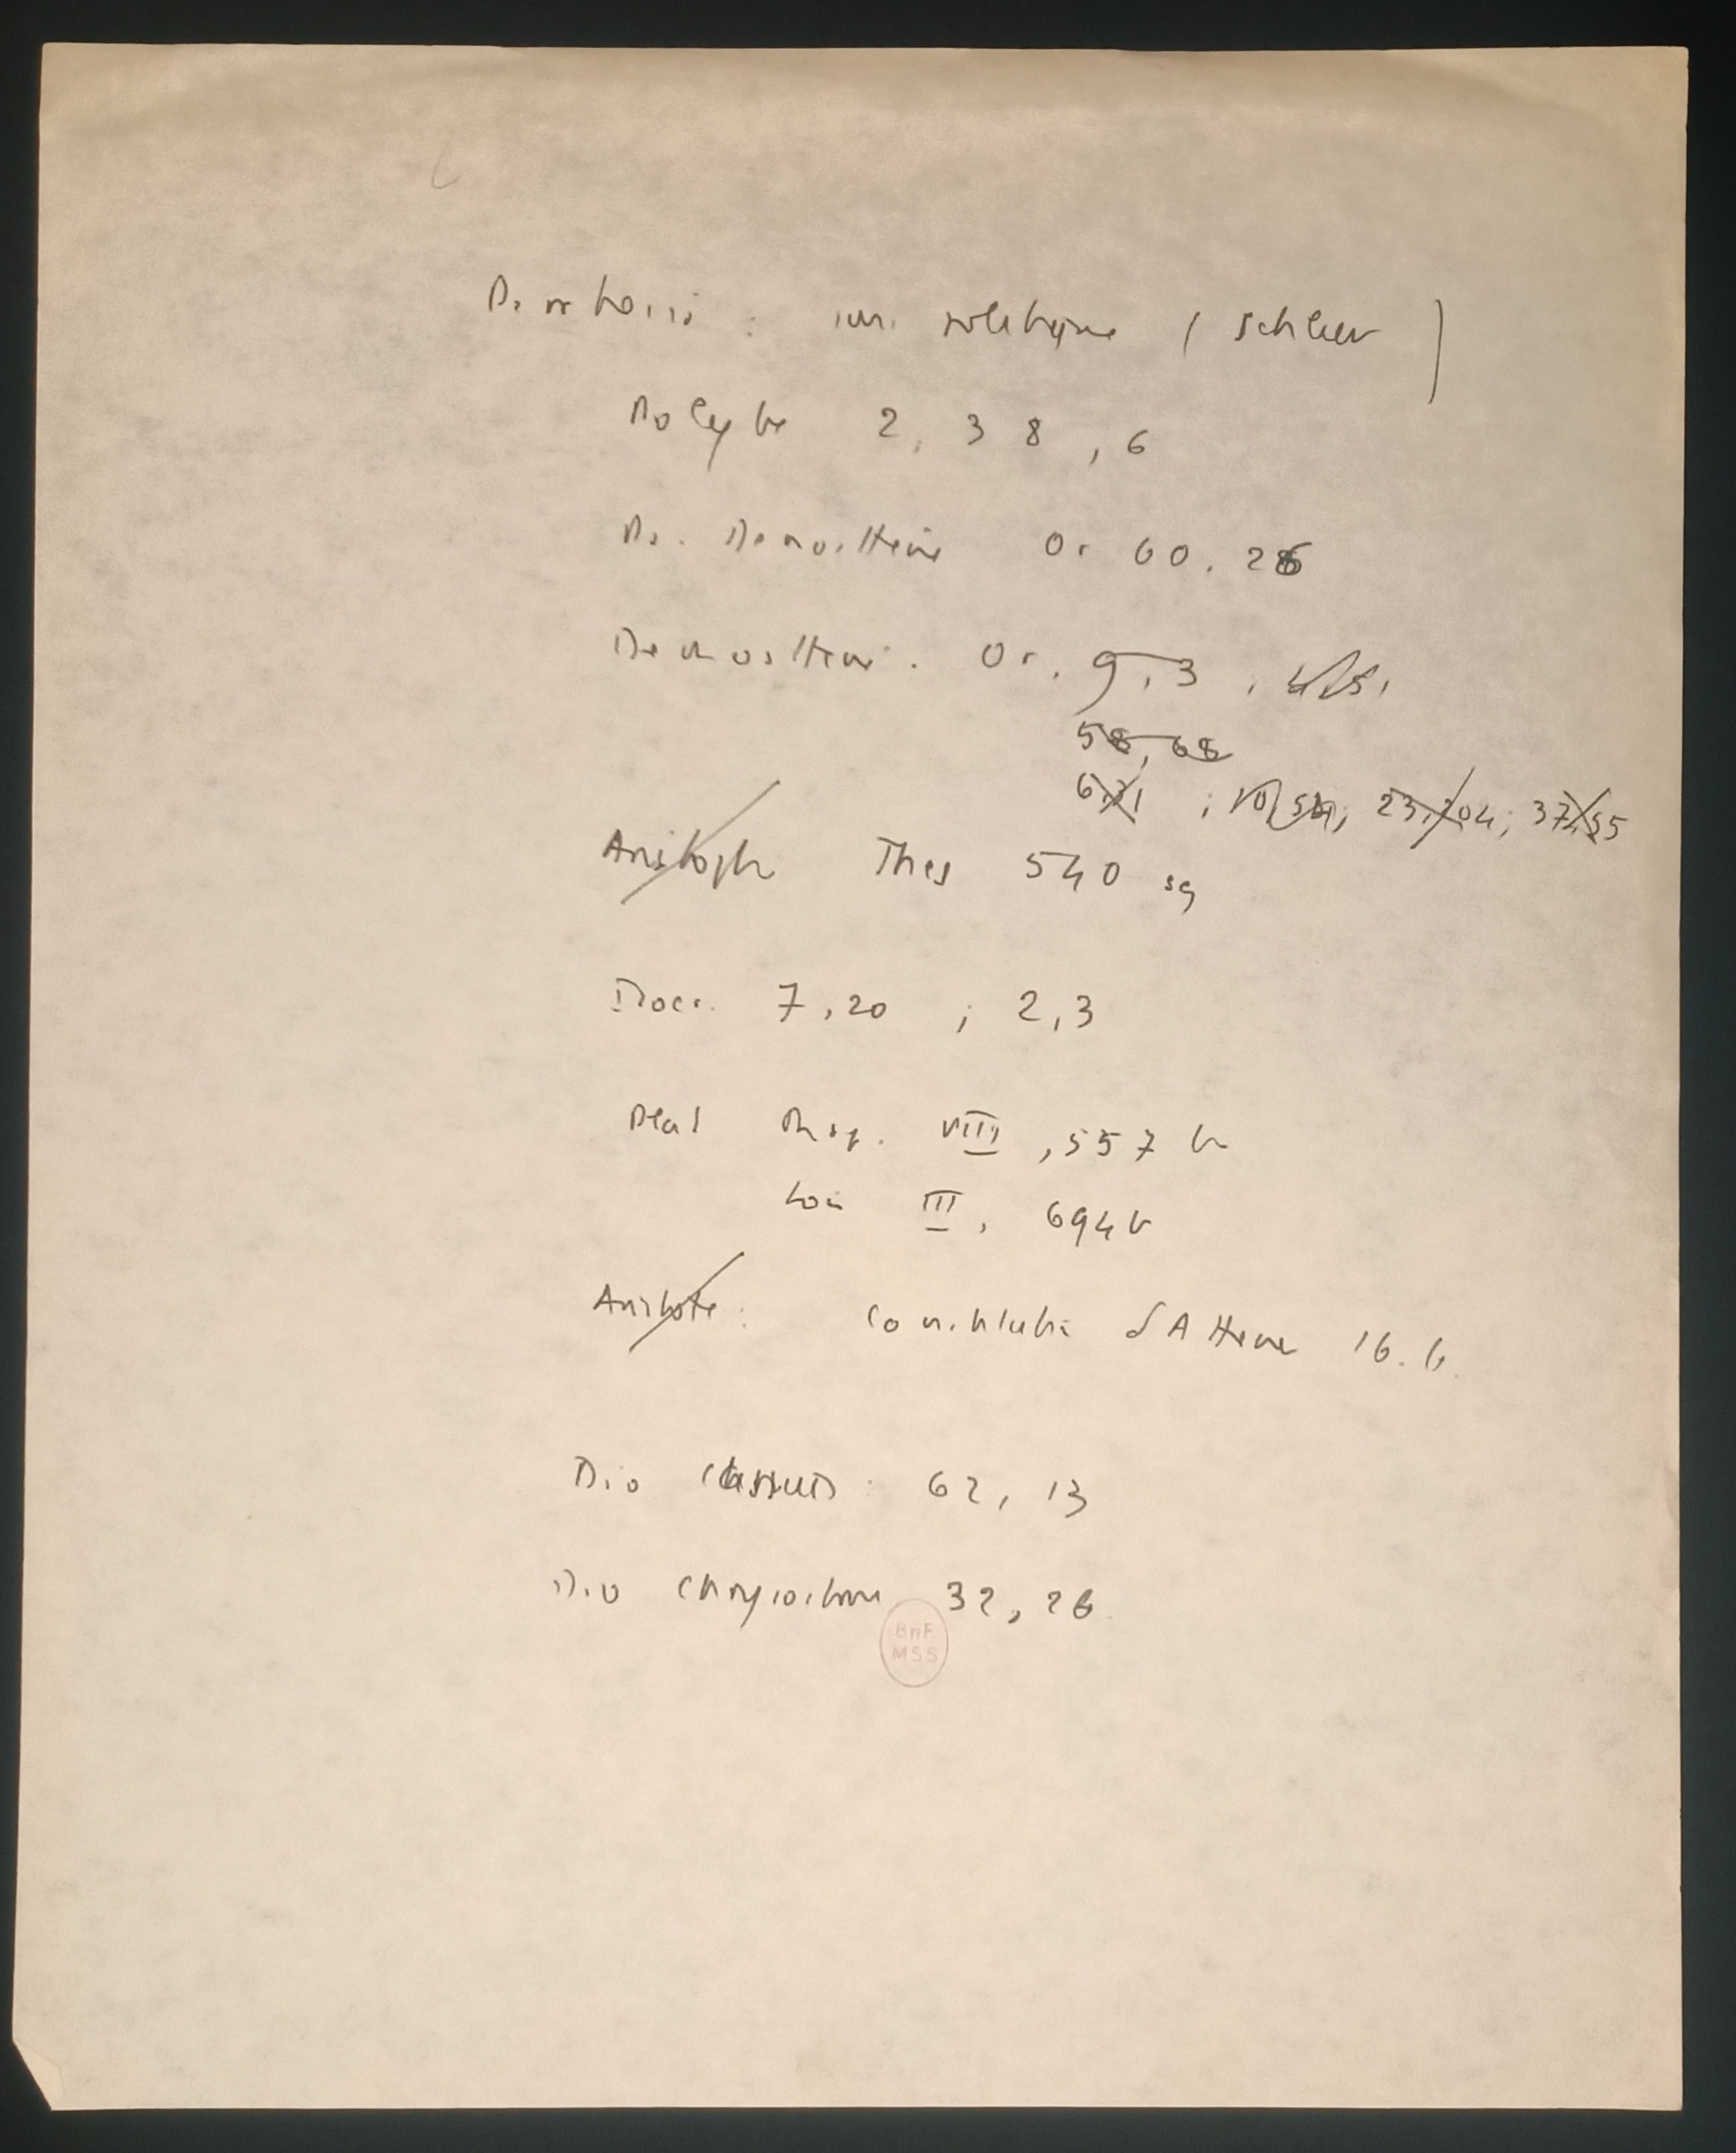 Parrhesia : sens politique ( Schlier )
Polybe 2, 38, 6
Ps. Demosthène Or 60. 26
Demosthène. Or. 9, 3,
58, 68
6,31 ; 10,54; 23,204; 37,55
Aristoph Thes 540 sq
Isocr. 7,20 ; 2,3
Plat Rep. VIII, 557 b
Lois III, 694 b
Aristote : Constitution d'Athene 16.6
Dio Cassius : 62, 13
Dio Chrysostome 32, 26.
BnF
MSS